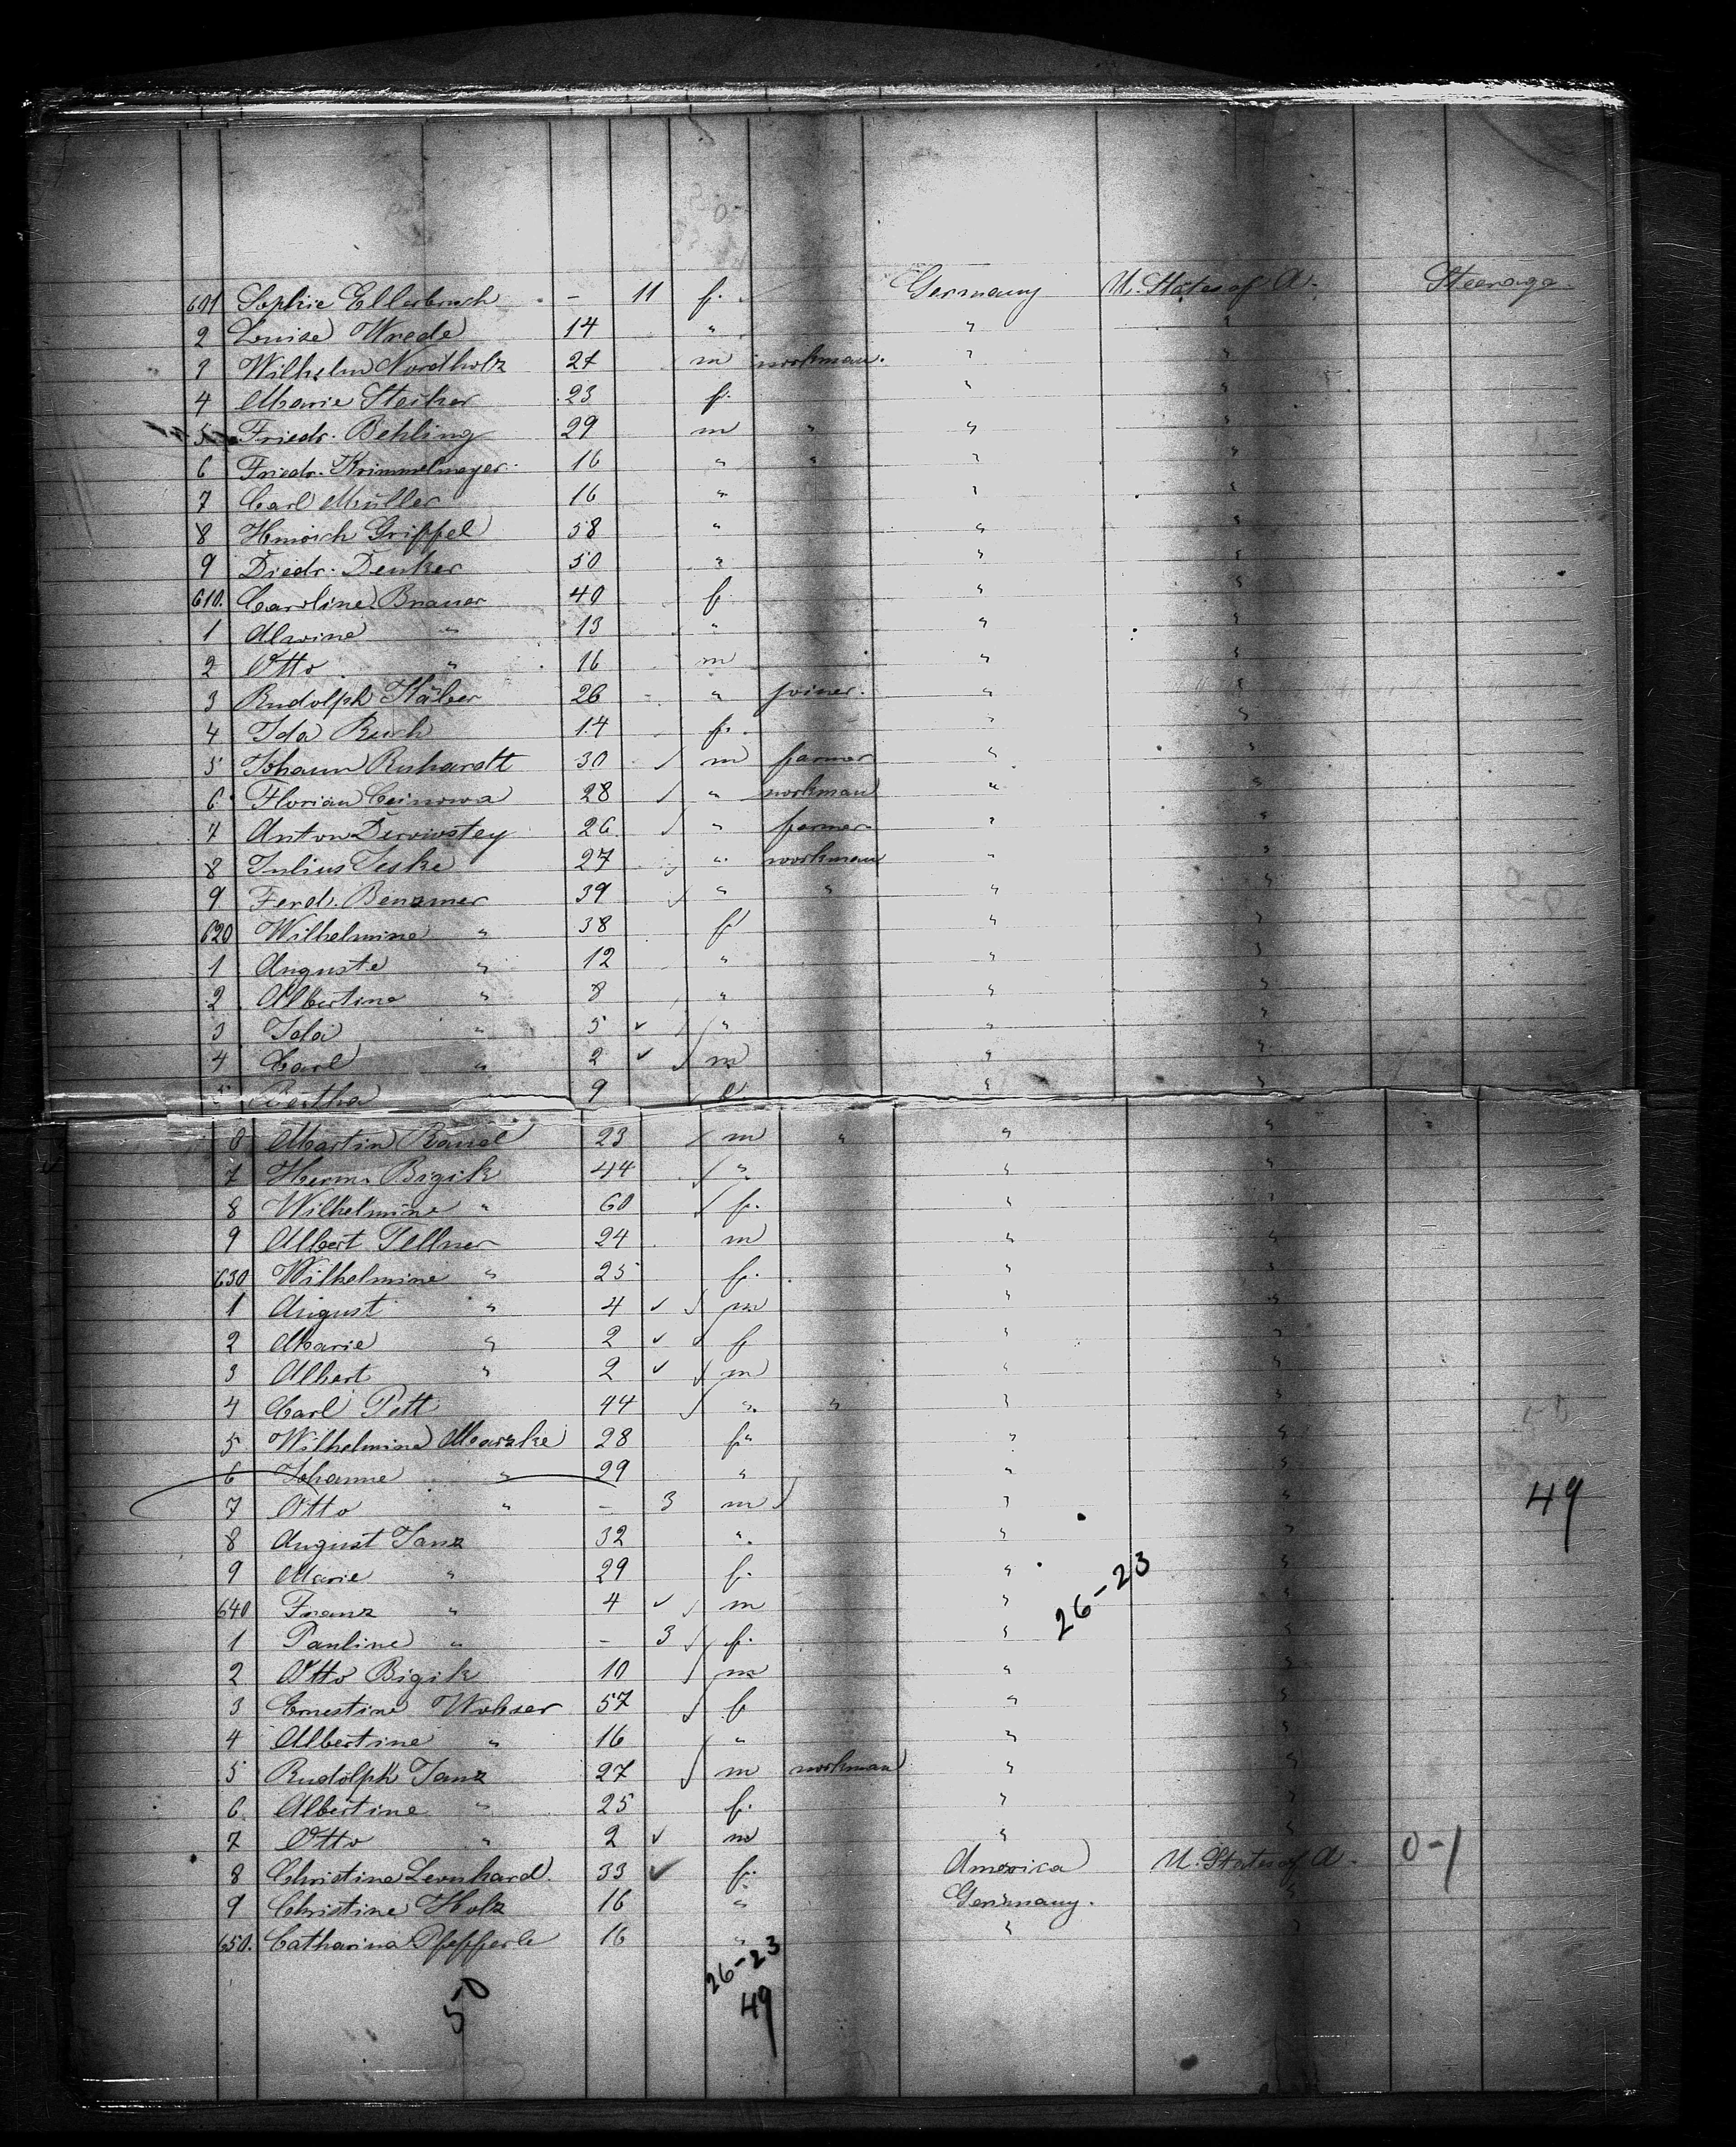 601 Sophie Ellerbusch - 11 f. Germany U. States of A. Steerage
2 Louise Wrede 14 " " "
3 Wilhelm Nordholz 27 m workman. " "
4 Marie Stecker 23 f. " "
5 Friedr. Behling 29 m " " "
6 Friedr. Krimmelmeyer 16 " " " "
7 Carl Müller 16 " " "
8 Heinrich Griffel 58 " " "
9 Diedr. Denker 50 " " "
610. Caroline Brauer 40 f " "
1 Alwine " 13 " " "
2 Otto " 16 m " "
3 Rudolph 26 " joiner. " "
4 Ida Buch 14 f. " "
5 Johann Ruhardt 30 m farmer " "
6 Florian Ceinowa 28 " workman " "
7 Anton 26 " farmer " "
8 Julius Jeske 27 " workman " "
9 Ferd. Benzmer 39 " " " "
620 Wilhelmine " 38 f " "
1 Auguste " 12 " " "
2 Albertine " 8 " " "
3 Ida " 5 ✓ " " "
4 Carl " 2 ✓ m " "
5 Bertha 9 f. " "
6 Martin 23 m " " "
7 Herm. Bigik 44 " " "
8 Wilhelmine " 60 f. " "
9 Albert Tellner 24 m " "
630 Wilhelmine " 25 f. " "
1 August " 4 ✓ m " "
2 Marie " 2 ✓ f " "
3 Albert " 2 ✓ m " "
4 Carl Pott 44 " " " "
5 Wilhelmine Marzke 28 f " "
6 Johanne " 29 " " "
7 Otto " - 3 m " " 49
8 August Janz 32 " " "
9 Marie " 29 f. " "
640 Franz " 4 ✓ m " 26-23 "
1 Pauline " - 3 f. " "
2 Otto Bigik 10 m " "
3 Ernestine Wobser 57 f " "
4 Albertine " 16 " " "
5 Rudolph Janz 27 m workman " "
6 Albertine " 25 f. " "
7 Otto " 2 ✓ m " "
8 Christine Leonhard. 33 ✓ f. America U. States of A. 0-1
9 Christine Holz 16 " Germany. "
650. Catharina Pfefferle 16 " " "
50 26-23
49